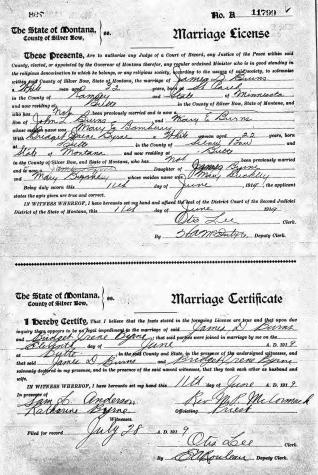 No. A 11799
The State of Montana,
County of Silver Bow, } ss.
Marriage License
These Presents, Are to authorize any Judge of a Court of Record, any Justice of the Peace within said
County, elected, or appointed by the Governor of Montana therefor, any regular ordained Minister who is in good standing in
the religious denomination to which he belongs, or any religious society, according to the usages of said society, to solemnize
within said County of Silver Bow and State of Montana, the marriage of James D Burns
White years of age 32 years, born at St Paul
in the County of Ramsey State of Minnesota
and now residing at Butte
who has Not been previously married and is now
Son of John L Burns and Mary E Burns
whose maiden name was Mary E
and Bridget Irene Byrne White woman aged 22 born
at Butte Silver Bow
State of Montana and now residing at Butte
in the County of Silver Bow, and State of Montana, who has Not been previously married
and is Daughter of James Byrne
and Mary Byrne whose maiden name was Mary Buckley
Being duly sworn this 11th day of June 1919 the applicant
states the epis given are true and correct.
IN WITNESS WHEREOF, I have hereunto set my hand and affixed the seal of the District Court of the Second Judicial
District of the State of Montana, this 11th day of June 1919
Otis Lee Clerk.
By Deputy Clerk.
The State of Montana,
County of Silver Bow, } ss.
Marriage Certificate
I Hereby Certify, That I believe the facts stated in the foregoing License are true and that upon due
inquiry there appears to be no legal impediment to the marriage of said James D Burns
and Bridget Irene Byrne that said parties were joined in marriage by me on the
Eleventh day of June A. D. 1919
at Butte in the said County and State, in the presence of the undersigned witnesses, and
that said James D Burns and Bridget Irene Byrne
solemnly declared in my presence, and in the presence of the said named witnesses, that they took each other as husband and
wife.
IN WITNESS WHEREOF, I have hereunto set my hand this 11th day of June A. D. 1919
In presence of
Sam L. Anderson Rev McCormack
Katharine Byrne Officiating Priest
Witnesses
Filed for record July 28 A. D. 1919
Otis Lee Clerk.
By Deputy Clerk.